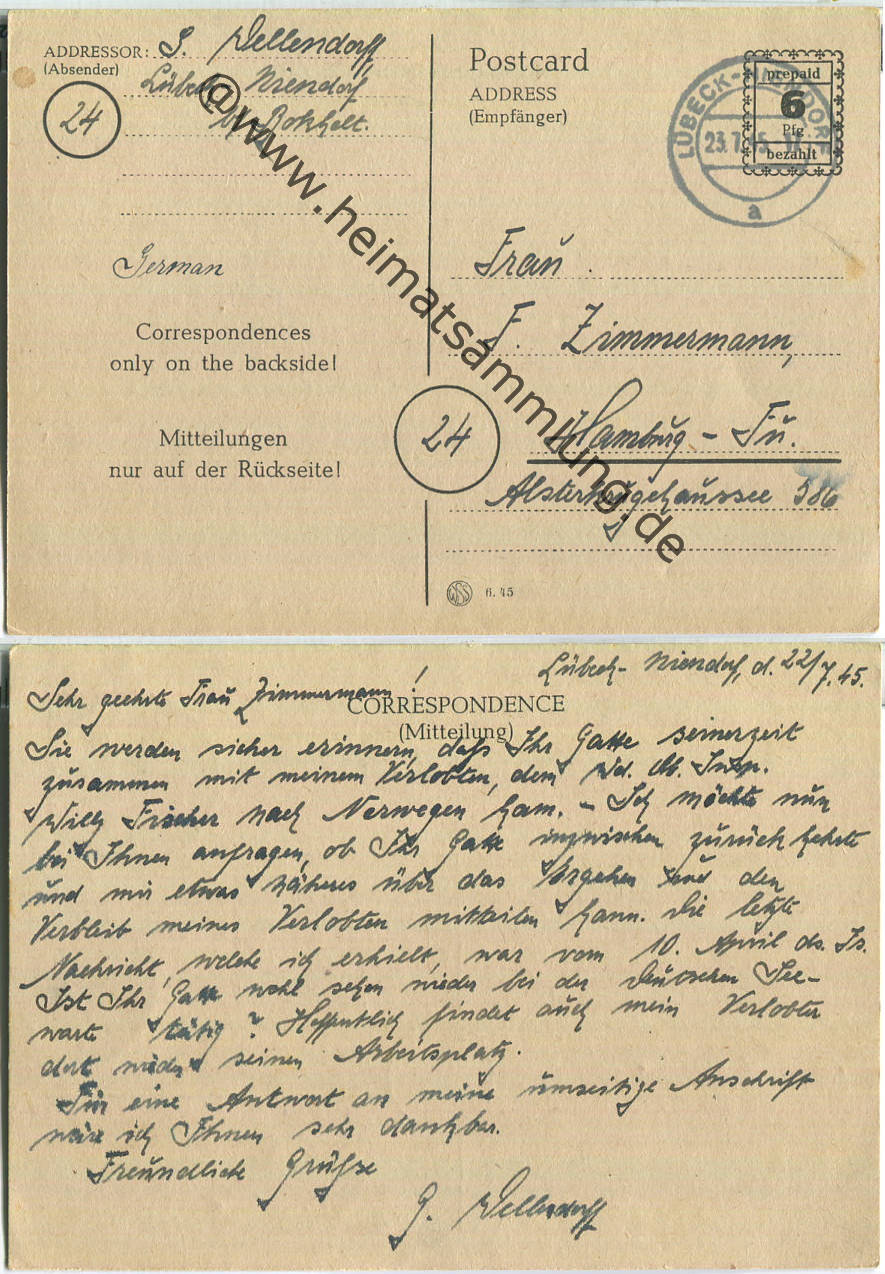 ADDRESSOR: G. Wellendorff
(Absender) Lübeck Niendorf
24 b/ Bokholt.
German
Correspondences
only on the backside!
Mitteilungen
nur auf der Rückseite!
Postcard
ADDRESS
(Empfänger)
prepaid
6
Pfg
bezahlt
LÜBECK-NIENDORF
23.7.45
a
Frau
F. Zimmermann,
24 Hamburg - Fu.
Alsterkrugchaussee 586
6. 45
@www.heimatsammlung.de
Lübeck-Niendorf, d. 22/7.45.
CORRESPONDENCE
(Mitteilung)
Sehr geehrte Frau Zimmermann!
Sie werden sicher erinnern, dass Ihr Gatte seinerzeit
zusammen mit meinem Verlobten, dem Ob. Insp.
Willy Fischer nach Norwegen kam. - Ich möchte nun
bei Ihnen anfragen, ob Ihr Gatte inzwischen zurückkehrte
und mir etwas näheres über das Ergehen und den
Verbleib meines Verlobten mitteilen kann. Die letzte
Nachricht, welche ich erhielt, war vom 10. April ds. Js.
Ist Ihr Gatte wohl schon wieder bei der Deutschen See-
warte tätig? Hoffentlich findet auch mein Verlobter
dort wieder seinen Arbeitsplatz.
Für eine Antwort an meine umseitige Anschrift
wäre ich Ihnen sehr dankbar.
Freundliche Grüsse
G. Wellendorff